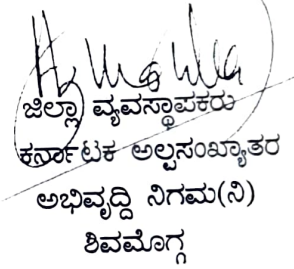 ಜಿಲ್ಲಾ ವ್ಯವಸ್ಥಾಪಕರು
ಕರ್ನಾಟಕ ಅಲ್ಪಸಂಖ್ಯಾತರ
ಅಭಿವೃದ್ದಿ ನಿಗಮ(ನಿ)
ಶಿವಮೊಗ್ಗ